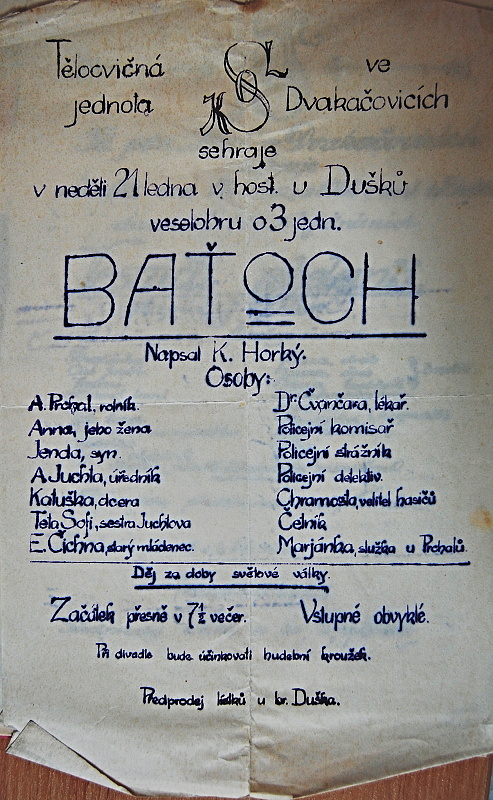 Tělocvičná SOKOL ve
jednota Dvakačovicích
sehraje
v neděli 21 ledna v host. u Dušků
veselohru o 3 jedn.
BAŤOCH
Napsal K. Horký.
Osoby:
A. Prchal, rolník.
Anna, jeho žena
Jenda, syn.
A Juchta, úředník
Katuška, dcera
Teta Sofi, sestra Juchtova
E. Čichna, starý mládenec.
Dr. Čvančara, lékař.
Policejní komisař
Policejní strážník
Policejní detektiv.
Chramosta, velitel hasičů
Četník
Marjánka, služka u Prchalů.
Děj za doby světové války.
Začátek přesně v 7½ večer. Vstupné obvyklé.
Při divadle bude účinkovati hudební kroužek.
Předprodej lístků u br. Duška.